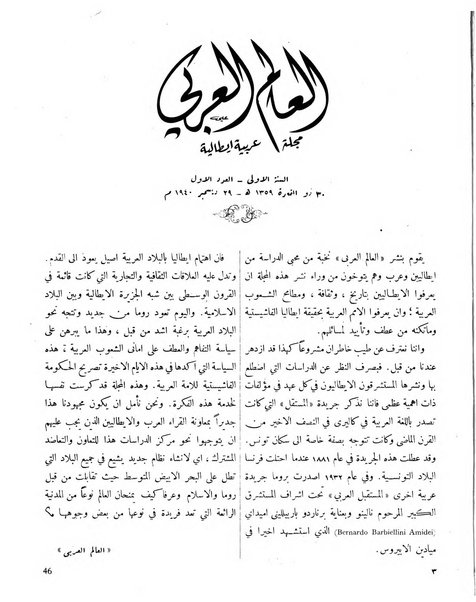 العالم العربي
مجلة عربية ايطالية
السنة الاولى – العدد الاول
٣٠ ذو القعدة ١٣٥٩ هـ – ٢٩ دسمبر ١٩٤٠ م
يقوم بنشر «العالم العربي» نخبة من محبي الدراسة من
ايطاليين وعرب وهم يتوخون من وراء نشر هذه المجلة ان
يعرفوا الايطاليين بتاريخ، وثقافة، ومطامح الشعوب
العربية؛ وان يعرفوا الامم العربية بحقيقة ايطاليا الفاشيستية
وماتكنه من عطف وتأييد لمسائلهم.
واننا نعترف عن طيب خاطران مشروعاً كهذا قد ازدهر
عندنا من قبل. فبصرف النظر عن الدراسات التي اضطلع
بها ونشرها المستشرقون الايطاليون في كل عهد في مؤلفات
ذات اهمية عظمى فاننا نذكر جريدة «المستقل» التي كانت
تصدر باللغة العربية في كاليرى في النصف الاخير من
القرن الماضي وكانت تتوجه بصفة خاصة الى سكان تونس.
وقد عطلت هذه الجريدة في عام ١٨٨١ عندما احتلت فرنسا
البلاد التونسية. وفي عام ١٩٣٢ اصدرت بروما جريدة
عربية اخرى «المستقبل العربي» تحت اشراف المستشرق
الكبير المرحوم نالينو وبعناية برناردو باربيلليني اميداي
(Bernardo Barbiellini Amidei) الذي استشهد اخيرا في
ميادين الابيروس.
فان اهتمام ايطاليا بالبلاد العربية اصيل يعود الى القدم.
وتدل عليه العلاقات الثقافية والتجارية التي كانت قائمة في
القرون الوسطى بين شبه الجزيرة الايطالية وبين البلاد
الاسلامية. واليوم تعود روما من جديد وتتجه نحو
البلاد العربية برغبة اشد من قبل، وهذا ما يبرهن على
سياسة التفاهم والعطف على امانى الشعوب العربية؛ هذه
السياسة التي اكدها في هذه الايام الاخيرة تصريح الحكومة
الفاشيستية للامة العربية. وهذه المجلة قد كرست نفسها
لخدمة هذه الفكرة. ونحن نأمل ان يكون مجهودنا هذا
جديراً بمعاونة القراء العرب والايطاليين الذين يجب عليهم
ان يتوجهوا نحو مركز الدراسات هذا للتعاون والتعاضد
المشترك، اي لانشاء نظام جديد يشيع في جميع البلاد التي
تطل على البحر الابيض المتوسط حيث تقابلت من قبل
روما والاسلام وعرفا كيف يمنحان العالم نوعاً من المدنية
الرائعة التي تعد فريدة في نوعها من بعض وجوهها؟
«العالم العربى»
46
٣